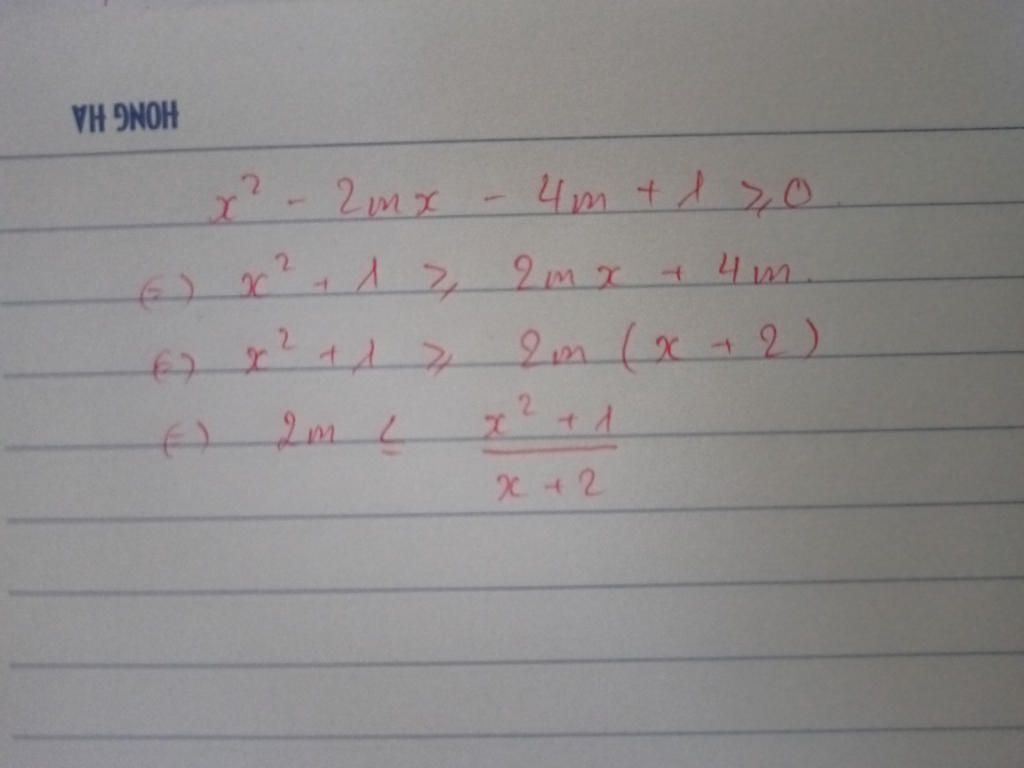 HONG HA
x² - 2mx - 4m + 1 ⩾ 0
(=) x² + 1 ⩾ 2mx + 4m.
(=) x² + 1 ⩾ 2m (x + 2)
(=) 2m ≤ x² + 1 / x + 2